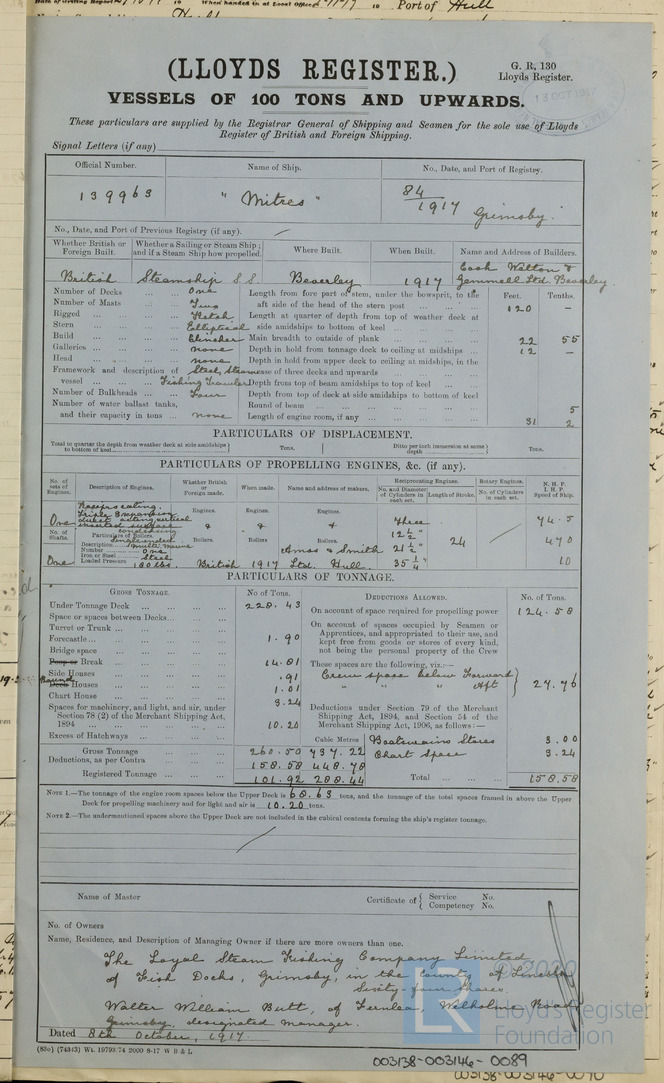 When handed in at Local Office
Port of Hull
Hull
(LLOYDS REGISTER.)
G. R. 130
Lloyds Register.
13 OCT 1917
VESSELS OF 100 TONS AND UPWARDS.
These particulars are supplied by the Registrar General of Shipping and Seamen for the sole use of Lloyds
Register of British and Foreign Shipping.
Signal Letters (if any)
Official Number. Name of Ship. No., Date, and Port of Registry.
139963 "Mitres" 84/1917 Grimsby.
No., Date, and Port of Previous Registry (if any).
Whether British or Foreign Built. Whether a Sailing or Steam Ship; and if a Steam Ship how propelled. Where Built. When Built. Name and Address of Builders.
British Steamship S.S. Beverley 1917 Cook Welton & Gemmell Ltd. Beverley.
Number of Decks One Length from fore part of stem, under the bowsprit, to the Feet. Tenths.
Number of Masts Two aft side of head of the stern post 120 —
Rigged Ketch Length at quarter of depth from top of weather deck at
Stern Elliptical side amidships to bottom of keel
Build Clincher Main breadth to outside of plank 22 55
Galleries none Depth in hold from tonnage deck to ceiling at midships 12 —
Head none Depth in hold from upper deck to ceiling at midships, in the
Framework and description of Steel, Steam case of three decks and upwards
vessel Fishing Trawler Depth from top of beam amidships to top of keel
Number of Bulkheads Four Depth from top of deck at side amidships to bottom of keel
Number of water ballast tanks, Round of beam 5
and their capacity in tons none Length of engine room, if any 31 2
PARTICULARS OF DISPLACEMENT.
Total to quarter the depth from weather deck at side amidships to bottom of keel Tons. Ditto per inch immersion at same depth Tons.
PARTICULARS OF PROPELLING ENGINES, &c. (if any).
No. of sets of Engines. Description of Engines. Whether British or Foreign made. When made. Name and address of makers. Reciprocating Engines. Rotary Engines. N. H. P.
No. and Diameter of Cylinders in each set. Length of Stroke. No. of Cylinders in each set. I. H. P. Speed of Ship.
Reciprocating.
Triple Expansion
direct acting vertical
One inverted surface condensing Engines. & Engines. & Engines. & Three 74.5
No. of Shafts. Particulars of Boilers. Boilers. Boilers Boilers 12 1/2" 24 470
Description Single ended multi
Number One Amos & Smith 21 1/2"
Iron or Steel Steel
One Loaded Pressure 180 lbs. British 1917 Ltd. Hull. 35 1/4" 10
PARTICULARS OF TONNAGE.
GROSS TONNAGE. No of Tons. DEDUCTIONS ALLOWED. No. of Tons.
Under Tonnage Deck 228.43 On account of space required for propelling power 124.58
Space or spaces between Decks On account of spaces occupied by Seamen or
Turret or Trunk Apprentices, and appropriated to their use, and
Forecastle 1.90 kept free from goods or stores of every kind,
Bridge space not being the personal property of the Crew
Poop or Break 14.81 These spaces are the following, viz.:—
Side Houses .91 Crew space below Forward
Deck Round Houses 1.01 " " " Aft 27.76
Chart House 3.24
Spaces for machinery, and light, and air, under Deductions under Section 79 of the Merchant
Section 78 (2) of the Merchant Shipping Act, Shipping Act, 1894, and Section 54 of the
1894 10.20 Merchant Shipping Act, 1906, as follows:—
Excess of Hatchways Cubic Metres Boatswains Stores 3.00
Gross Tonnage 260.50 737.22 Chart Space 3.24
Deductions, as per Contra 158.58 448.78
Registered Tonnage 101.92 288.44 Total 158.58
NOTE 1.—The tonnage of the engine room spaces below the Upper Deck is 68.63 tons, and the tonnage of the total spaces framed in above the Upper
Deck for propelling machinery and for light and air is 10.20 tons.
NOTE 2.—The undermentioned spaces above the Upper Deck are not included in the cubical contents forming the ship's register tonnage.
Name of Master Certificate of Service No.
Competency No.
No. of Owners
Name, Residence, and Description of Managing Owner if there are more owners than one.
The Loyal Steam Fishing Company Limited
of Fish Docks, Grimsby, in the County of Lincoln
Sixty-four shares.
Walter William Butt, of Fernlea, Welholme Road
Grimsby, designated manager.
Dated 8th October, 1917.
(83c) (74343) Wt. 19793/74 2000 8-17 W B & L
© 2020
LR
Lloyd's Register
Foundation
003138-003146-0089
003138-003146-0090